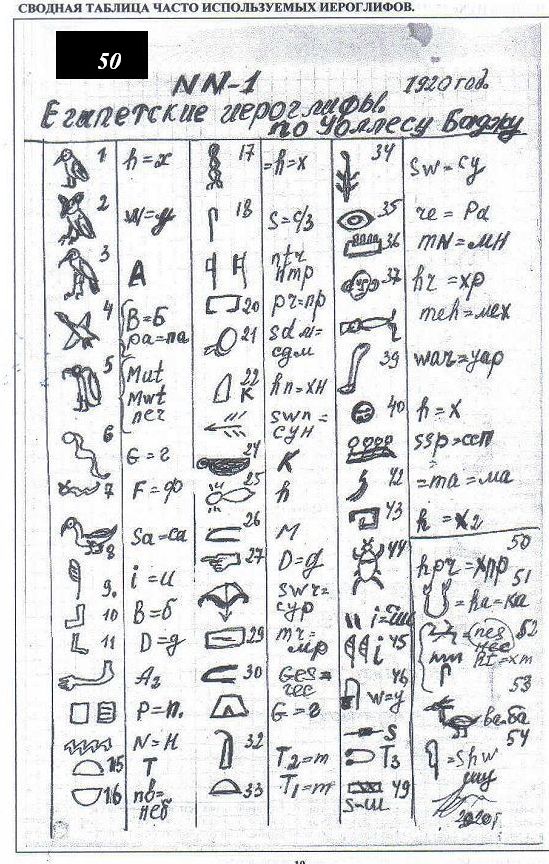 СВОДНАЯ ТАБЛИЦА ЧАСТО ИСПОЛЬЗУЕМЫХ ИЕРОГЛИФОВ.
50
NN-1 1920 год.
Египетские иероглифы
по Уоллесу Баджу
1 h=x
2 w=у
3 A
4 B=б
pa=па
5 Mut
Mwt
6 G=г
7 F=ф
8 Sa=са
9. i=и
10 B=б
11 D=д
A2
P=п.
N=н
15 T
16 nв=
неб
17 =h=x
18 S=с/з
ntr
нтр
20 pr=пр
21 sdm=
сдм
22 K hn=хн
swn=
сун
24 K
25 h
26 M
27 D=д
swr=
сур
29 mr=
мр
30 Ges=
гес
G=г
32 T2=т
33 T1=т
34 sw=су
35 re=Ра
36 mN=мн
37 hr=хр
meh=мех
39 war=уар
40 h=x
ssp=ссп
42 =ma=ма
43 h=x2
44
45 i
46 w=у
S
T3
49
S-ш
50 hpr=хпр
51 =ka=ка
52 =nes
нес
53
ва=ба
54 =shw
шу
2020г
10